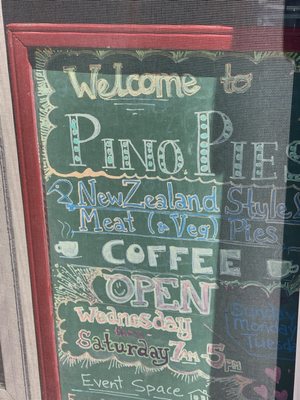 Welcome to
PINO PIES
New Zealand Style
Meat (& Veg) Pies
COFFEE
OPEN
Wednesday
Saturday 7AM - 5PM
Sunday
Monday
Tuesd
Event Space